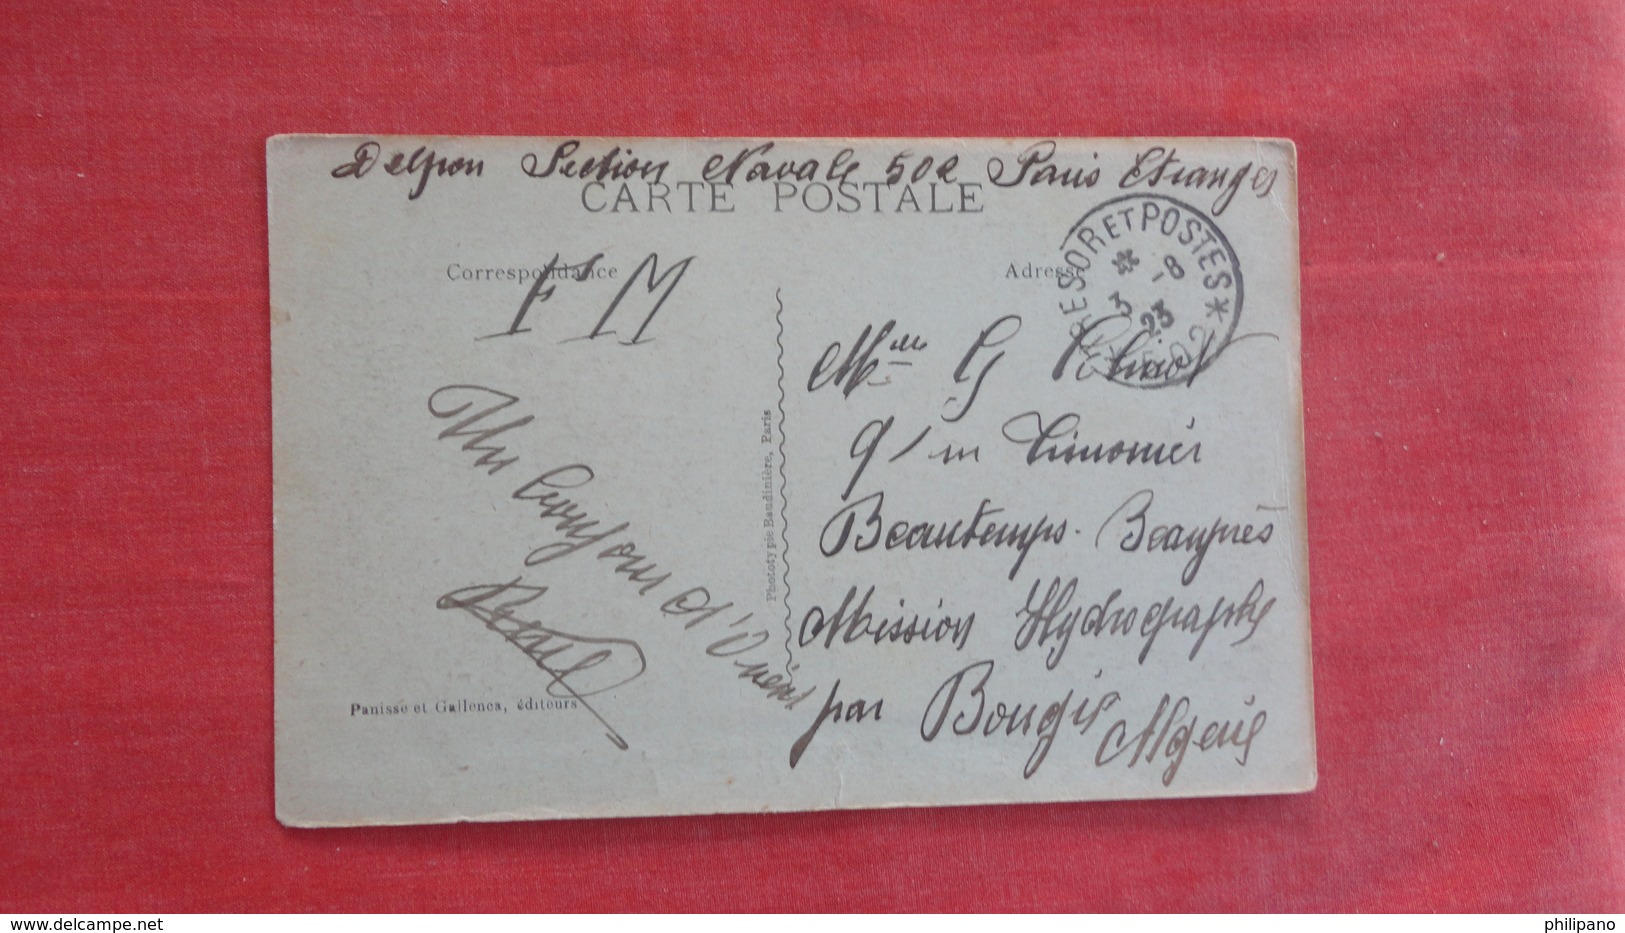 Delpon Section Navale 502 Paris Etranger
CARTE POSTALE
Correspondance
Adresse
F M
TRESOR ET POSTES
* 502 *
3 -8 23
G
q/m Timonier
Beautemps-Beauprès
Mission Hydrographe
par Bougie
Algerie
Un bonjour d'Orient
Phototypie Baudinière, Paris
Panisse et Gallenca, éditeurs
www.delcampe.net
philipano